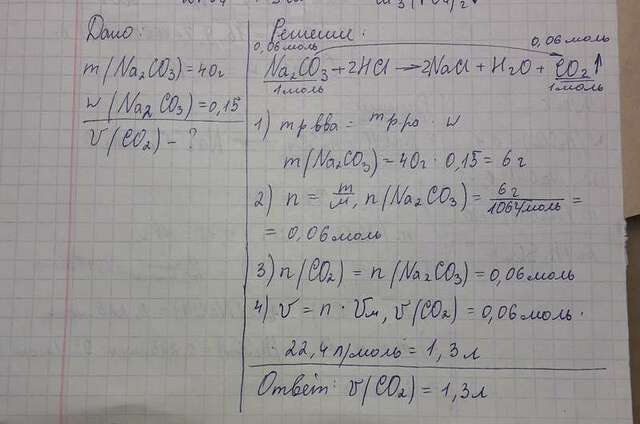 Дано:
m(Na₂CO₃)=40г
w(Na₂CO₃)=0,15
V(CO₂)-?
Решение:
0,06моль 0,06моль
Na₂CO₃+2HCl→2NaCl+H₂O+CO₂↑
1моль 1моль
1) mрвва = mрра · w
m(Na₂CO₃)=40г·0,15=6г
2) n = m/M, n(Na₂CO₃)=6г/106г/моль =
= 0,06моль
3) n(CO₂)=n(Na₂CO₃)=0,06моль
4) V=n·Vм, V(CO₂)=0,06моль·
·22,4л/моль=1,3л
Ответ: V(CO₂)=1,3л